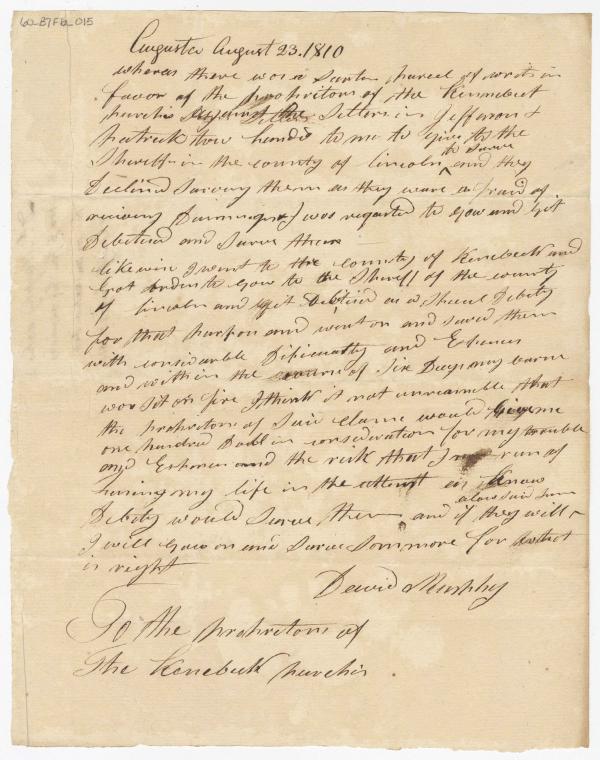 60_B7F6a_015
Augusta August 23. 1810
whereas there was a Sartin parcel of writs in
favor of the propritors of the Kennebeck
purchis against the Setlers in Jefferson &
patrick tow handid to me to give to the
Sheriff in the county of lincoln to Sarve and they
Declind Sarving them as they ware afraid of
reciving Dammiges I was requsted to gow and Git
Debitised and Sarve them
likewise I went to the county of Kenebeck and
Got orders to Gow to the Sheriff of the county
of lincoln and git Debitised as a Shecel Debity
for that purpos and went on and Sarved them
with considarable Dificualty and Expences
and within the courrs of Six Days my barne
was Sit on fire I think it not unresnible that
the propritors of Said claime would Give me
one hundred Doll in consideration for my trouble
and Expences and the risk that I run of
Lusing my life in the attempt as know
Debity would Sarve them and if they will alow Said Sum
I will Gow on and Sarve Som more for what
is right
David Murphy
To the propritors of
The Kenebeck purchis